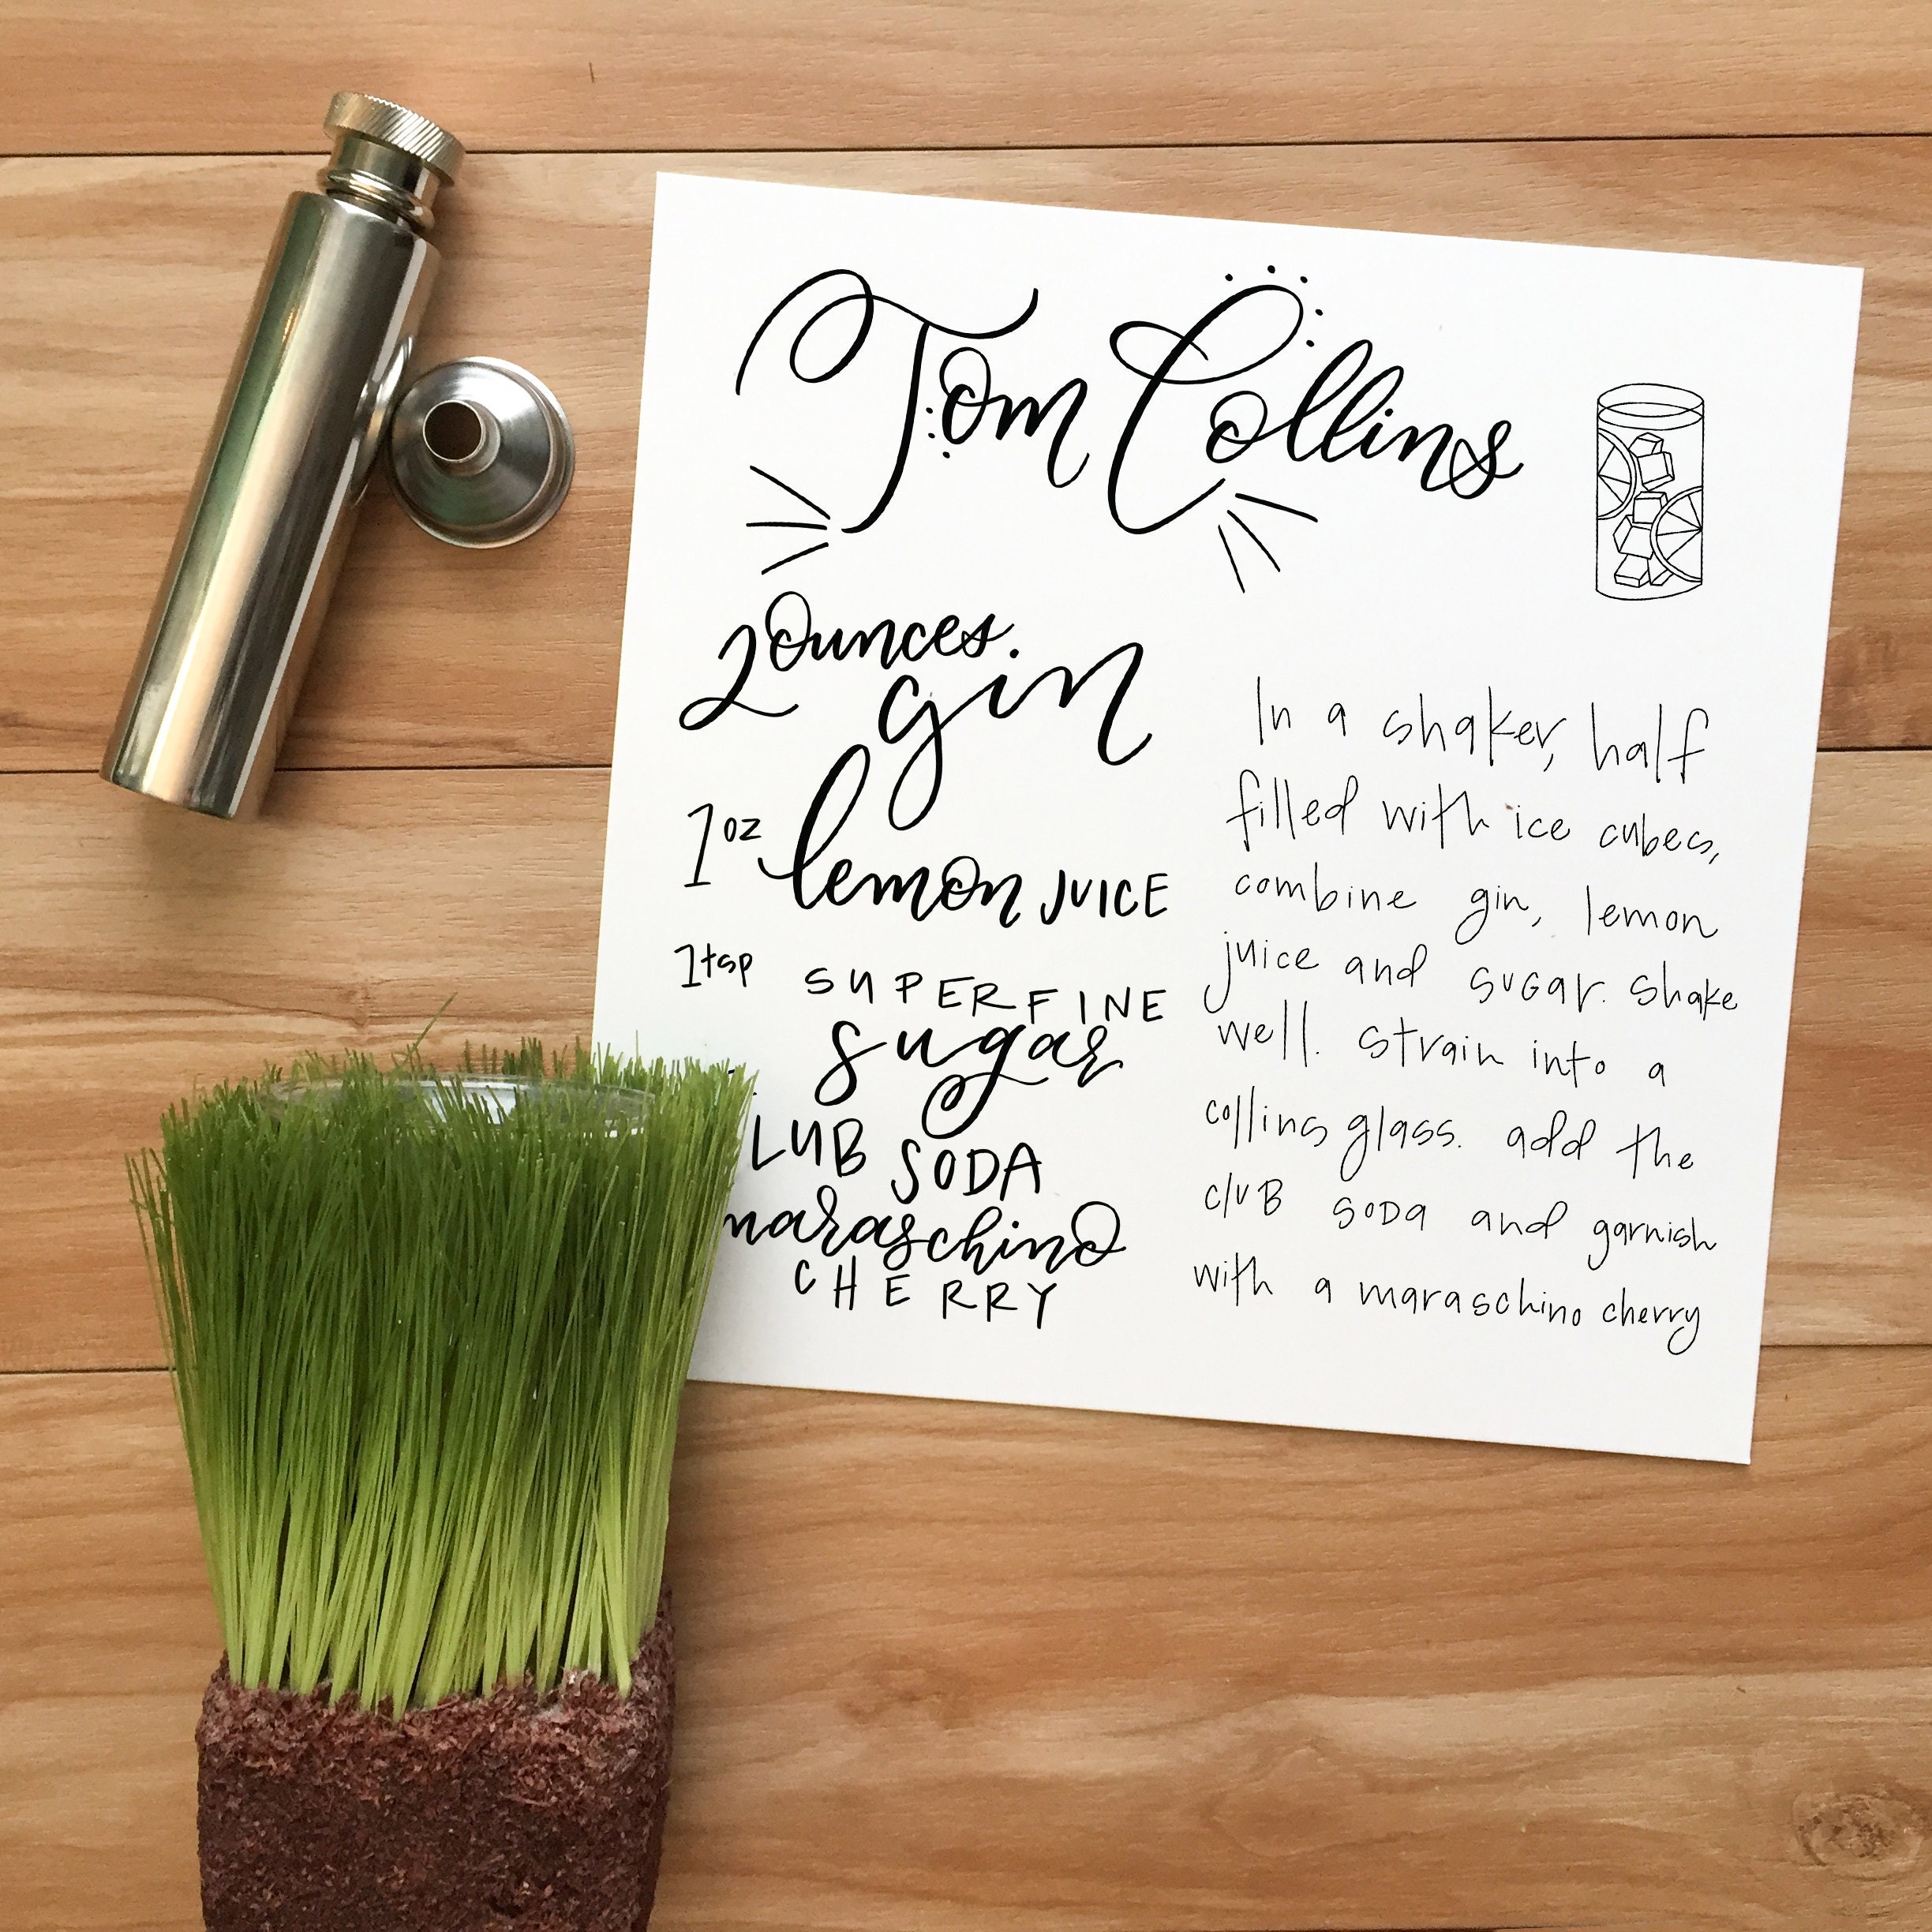 Tom Collins
2 ounces.
gin
1 oz lemon JUICE
1 tsp SUPERFINE
sugar
LUB SODA
maraschino
CHERRY
In a shaker, half
filled with ice cubes,
combine gin, lemon
juice and sugar. shake
well. strain into a
collins glass. add the
cluB soDa and garnish
with a maraschino cherry